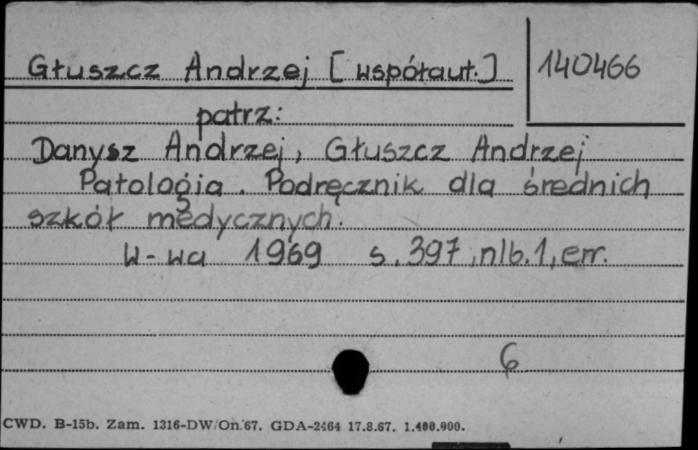 Głuszcz Andrzej [współaut.]
140466
patrz:
Danysz Andrzej, Głuszcz Andrzej
Patologia. Podręcznik dla średnich
szkół medycznych.
W-wa 1969 s. 397, nlb. 1, err.
6
CWD. B-15b. Zam. 1316-DW/On.67. GDA-2464 17.8.67. 1.400.000.